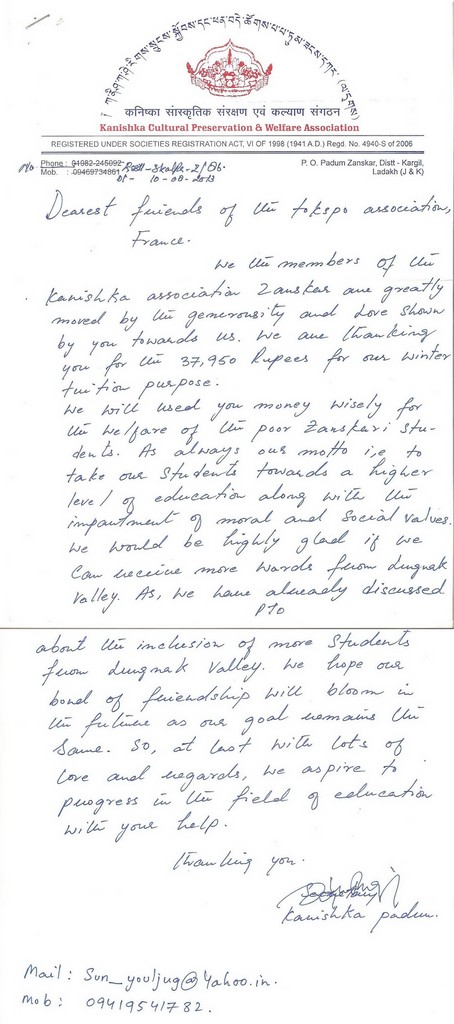 कनिष्का सांस्कृतिक संरक्षण एवं कल्याण संगठन
Kanishka Cultural Preservation & Welfare Association
REGISTERED UNDER SOCIETIES REGISTRATION ACT, VI OF 1998 (1941 A.D.) Regd. No. 4940-S of 2006
Phone : 01982-245092
Mob. : 09469734861
10-08-2013
P. O. Padum Zanskar, Distt - Kargil,
Ladakh (J & K)
Dearest friends of the tokspo association,
France.
We the members of the
Kanishka association Zanskar are greatly
moved by the generousity and love shown
by you towards us. We are thanking
you for the 37,950 Rupees for our winter
tuition purpose.
We will used you money wisely for
the welfare of the poor Zanskari stu-
dents. As always our motto i,e to
take our students towards a higher
level of education along with the
impartment of moral and social values.
We would be highly glad if we
can receive more wards from lungnak
Valley. As, we have already discussed
PTO
about the inclusion of more students
from lungnak Valley. We hope our
bond of friendship will bloom in
the future as our goal remains the
same. So, at last with lots of
love and regards, we aspire to
progress in the field of education
with your help.
Thanking you.
Kanishka padum.
Mail : Sun_youljug@Yahoo.in.
Mob : 09419541782.